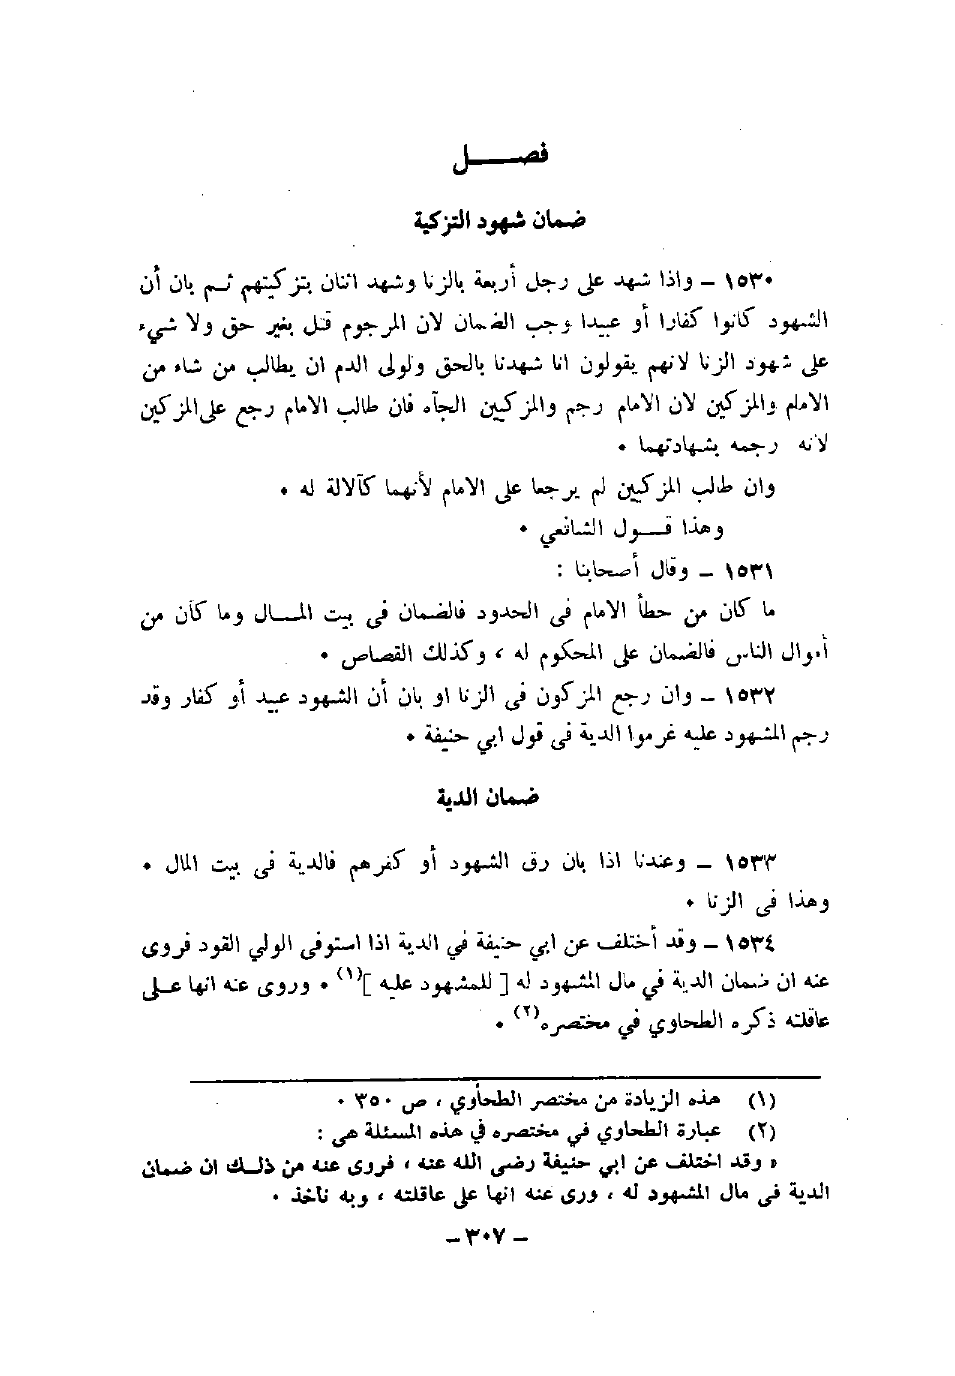 فصـــــل
ضمان شهود التزكية
١٥٣٠ – واذا شهد على رجل أربعة بالزنا وشهد اثنان بتزكيتهم ثـم بان أن
الشهود كانوا كفارا أو عبيدا وجب الضمان لان المرجوم قتل بغير حق ولا شيء
على شهود الزنا لانهم يقولون انا شهدنا بالحق ولولى الدم ان يطالب من شاء من
الامام والمزكين لان الامام رجم والمزكيين الجآه فان طالب الامام رجع على المزكين
لانه رجمه بشهادتهما ٠
وان طالب المزكيين لم يرجعا على الامام لأنهما كآلالة له ٠
وهذا قـــول الشافعي ٠
١٥٣١ – وقال أصحابنا :
ما كان من حطأ الامام فى الحدود فالضمان فى بيت المـــال وما كان من
أموال الناس فالضمان على المحكوم له ، وكذلك القصاص ٠
١٥٣٢ – وان رجع المزكون فى الزنا او بان أن الشهود عبيد أو كفار وقد
رجم المشهود عليه غرموا الدية فى قول ابي حنيفة ٠
ضمان الدية
١٥٣٣ – وعندنا اذا بان رق الشهود أو كفرهم فالدية فى بيت المال ٠
وهذا فى الزنا ٠
١٥٣٤ – وقد أختلف عن ابي حنيفة في الدية اذا استوفى الولي القود فروى
عنه ان ضمان الدية في مال المشهود له [ للمشهود عليه ](١) ٠ وروى عنه انها علـى
عاقلته ذكره الطحاوي في مختصره(٢) ٠
(١) هذه الزيادة من مختصر الطحأوي ، ص ٣٥٠ ٠
(٢) عبارة الطحاوي في مختصره في هذه المسئلة هى :
« وقد اختلف عن ابي حنيفة رضى الله عنه ، فروى عنه من ذلـك ان ضمان
الدية فى مال المشهود له ، ورى عنه انها على عاقلته ، وبه نأخذ ٠
– ٣٠٧ –